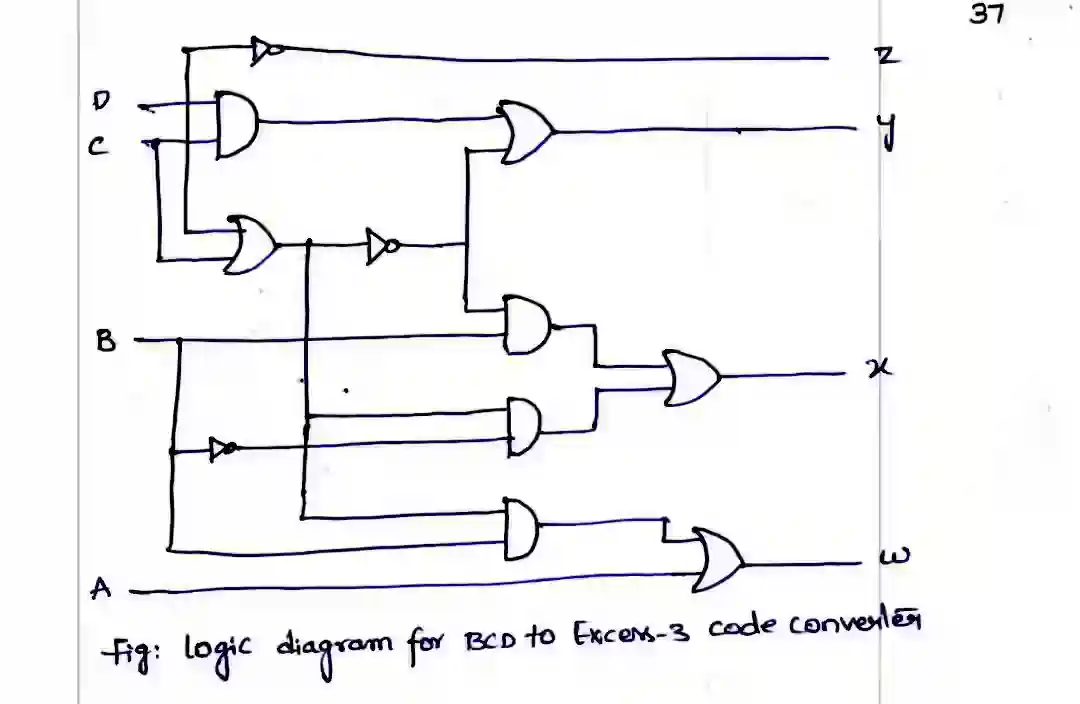 37
z
D
y
C
B
x
A
w
Fig: logic diagram for BCD to Excess-3 code converter